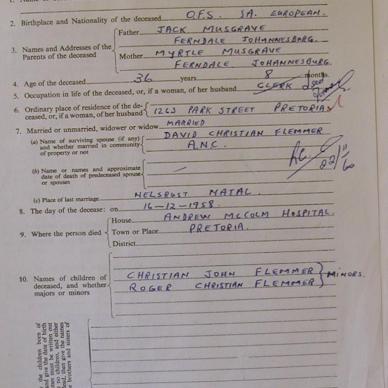 2. Birthplace and Nationality of the deceased O.F.S. SA. EUROPEAN.
Father JACK MUSGRAVE
FERNDALE JOHANNESBURG.
3. Names and Addresses of the Parents of the deceased
Mother MYRTLE MUSGRAVE
FERNDALE JOHANNESBURG.
4. Age of the deceased 36 years 8 months.
5. Occupation in life of the deceased, or, if a woman, of her husband CLERK
6. Ordinary place of residence of the deceased, or, if a woman, of her husband 1263 PARK STREET PRETORIA
7. Married or unmarried, widower or widow MARRIED
(a) Name of surviving spouse (if any) and whether married in community of property or not DAVID CHRISTIAN FLEMMER
A.N.C.
(b) Name or names and approximate date of death of predeceased spouse or spouses —
(c) Place of last marriage NELSRUST NATAL.
8. The day of the decease: on 16-12-1958.
House ANDREW McCOLM HOSPITAL.
9. Where the person died Town or Place PRETORIA.
District
10. Names of children of deceased, and whether majors or minors
CHRISTIAN JOHN FLEMMER
ROGER CHRISTIAN FLEMMER } MINORS.